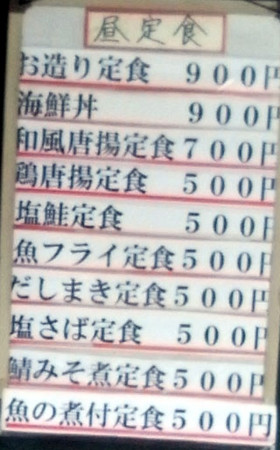 昼定食
お造り定食 ９００円
海鮮丼 ９００円
和風唐揚定食７００円
鶏唐揚定食 ５００円
塩鮭定食 ５００円
魚フライ定食５００円
だしまき定食５００円
塩さば定食 ５００円
鯖みそ煮定食５００円
魚の煮付定食５００円